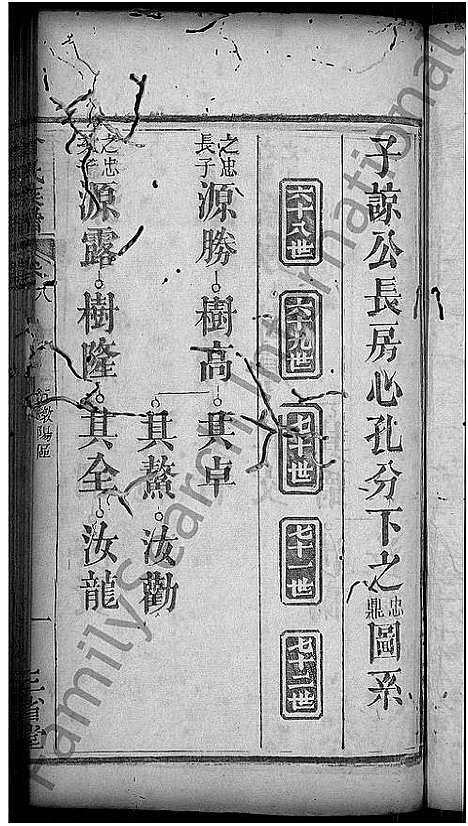 子諒公長房心孔分下之忠鼎圖系
六十八世
六十九世
七十世
七十一世
七十二世
之忠長子 源勝 樹高 其卓
其鰲 汝勸
之忠 源露 樹隆 其全 汝龍
三省堂
FamilySearch International